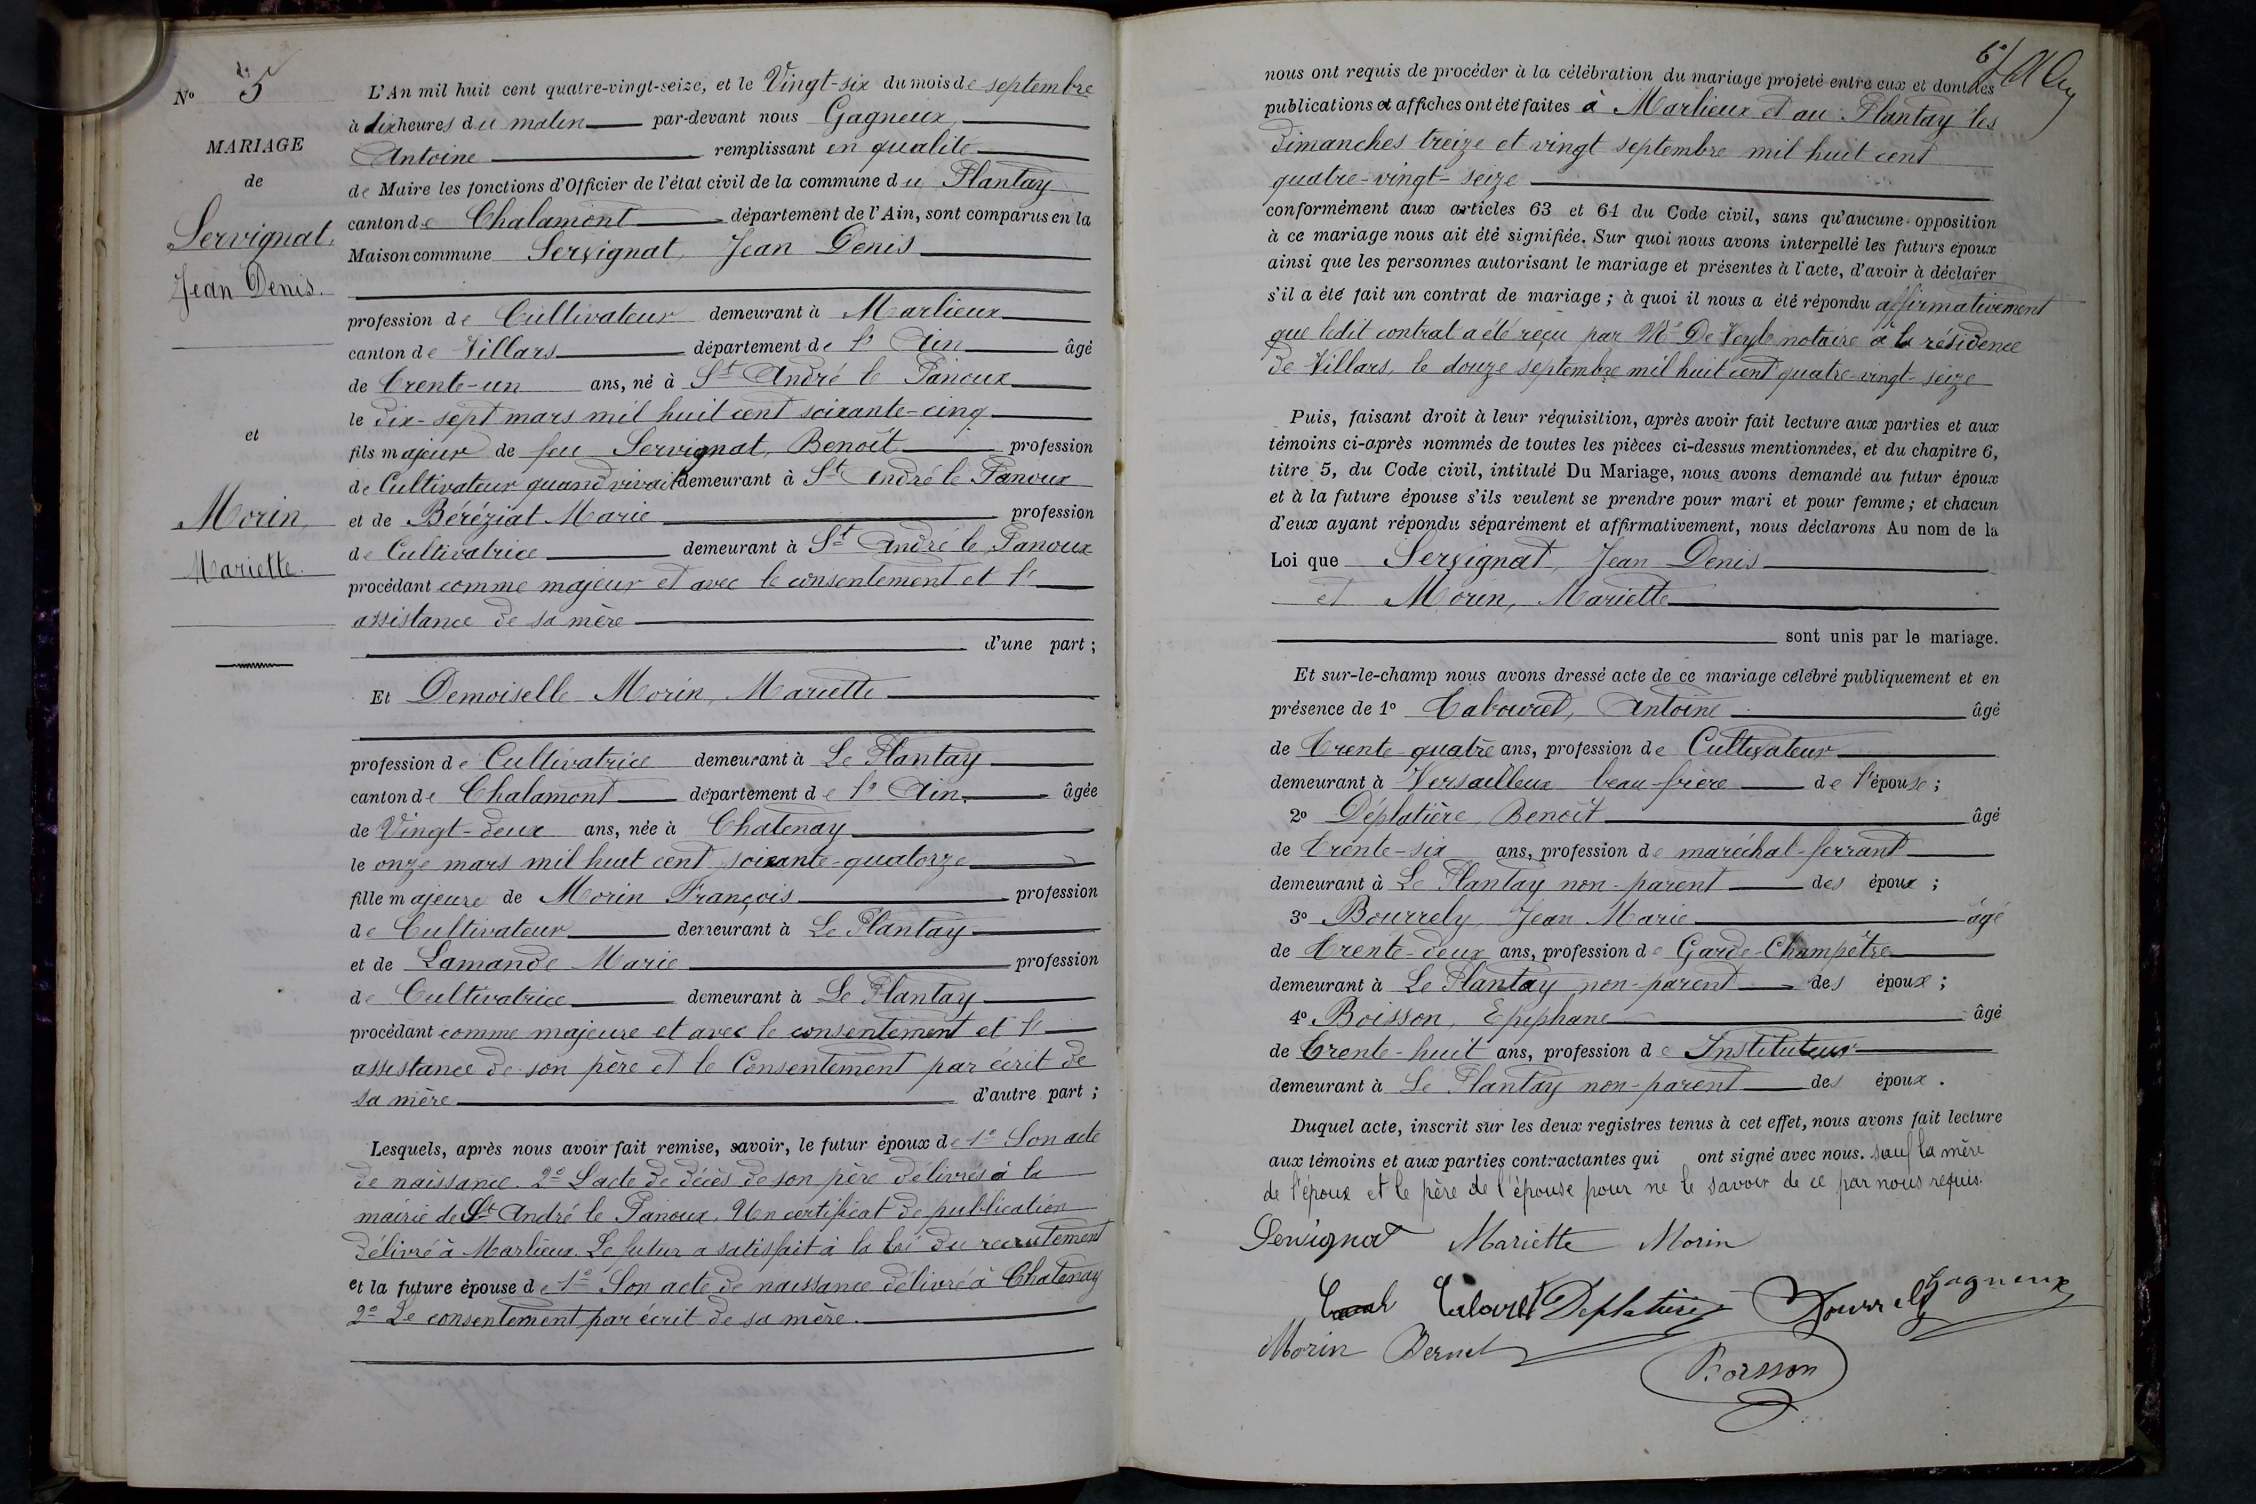 N° 5
MARIAGE
de
Servignat,
Jean Denis.
et
Morin,
Mariette.
L'An mil huit cent quatre-vingt-seize, et le Vingt-six du mois de septembre
à dix heures du matin par-devant nous Gagneux,
Antoine remplissant en qualité
de Maire les fonctions d'Officier de l'état civil de la commune du Plantay
canton de Chalamont département de l'Ain, sont comparus en la
Maison commune Servignat, Jean Denis
profession de Cultivateur demeurant à Marlieux
canton de Villars département de l'Ain âgé
de trente-un ans, né à St André le Panoux
le dix-sept mars mil huit cent soixante-cinq
fils majeur de feu Servignat, Benoît profession
de Cultivateur quand vivait demeurant à St André le Panoux
et de Béréziat Marie profession
de Cultivatrice demeurant à St André le Panoux
procédant comme majeur et avec le consentement et l'
assistance de sa mère
d'une part ;
Et Demoiselle Morin, Mariette
profession de Cultivatrice demeurant à Le Plantay
canton de Chalamont département de l'Ain, âgée
de Vingt-deux ans, née à Chatenay
le onze mars mil huit cent soixante-quatorze
fille majeure de Morin François profession
de Cultivateur demeurant à Le Plantay
et de Lamande Marie profession
de Cultivatrice demeurant à Le Plantay
procédant comme majeure et avec le consentement et l'
assistance de son père et le Consentement par écrit de
sa mère d'autre part ;
Lesquels, après nous avoir fait remise, savoir, le futur époux de 1° Son acte
de naissance. 2° L'acte de décès de son père délivrés à la
mairie de St André le Panoux. Un certificat de publication
délivré à Marlieux. Le futur a satisfait à la loi du recrutement
et la future épouse de 1° Son acte de naissance délivré à Chatenay
2° Le consentement par écrit de sa mère.
6°/
nous ont requis de procéder à la célébration du mariage projeté entre eux et dont les
publications et affiches ont été faites à Marlieux et au Plantay les
dimanches treize et vingt septembre mil huit cent
quatre-vingt-seize
conformément aux articles 63 et 64 du Code civil, sans qu'aucune opposition
à ce mariage nous ait été signifiée. Sur quoi nous avons interpellé les futurs époux
ainsi que les personnes autorisant le mariage et présentes à l'acte, d'avoir à déclarer
s'il a été fait un contrat de mariage ; à quoi il nous a été répondu affirmativement
que ledit contrat a été reçu par Me De Veyle notaire à la résidence
de Villars, le douze septembre mil huit cent quatre-vingt-seize
Puis, faisant droit à leur réquisition, après avoir fait lecture aux parties et aux
témoins ci-après nommés de toutes les pièces ci-dessus mentionnées, et du chapitre 6,
titre 5, du Code civil, intitulé Du Mariage, nous avons demandé au futur époux
et à la future épouse s'ils veulent se prendre pour mari et pour femme ; et chacun
d'eux ayant répondu séparément et affirmativement, nous déclarons Au nom de la
Loi que Servignat, Jean Denis
et Morin, Mariette
sont unis par le mariage.
Et sur-le-champ nous avons dressé acte de ce mariage célébré publiquement et en
présence de 1° Tabouret, Antoine âgé
de trente quatre ans, profession de Cultivateur
demeurant à Versailleux beau-frère de l'épouse ;
2° Déplatière, Benoît âgé
de trente-six ans, profession de maréchal-ferrant
demeurant à Le Plantay non-parent des époux ;
3° Bourrely Jean Marie âgé
de trente-deux ans, profession de Garde-Champêtre
demeurant à Le Plantay non-parent des époux ;
4° Boisson, Epiphane âgé
de trente-huit ans, profession de Instituteur
demeurant à Le Plantay non-parent des époux.
Duquel acte, inscrit sur les deux registres tenus à cet effet, nous avons fait lecture
aux témoins et aux parties contractantes qui ont signé avec nous. sauf la mère
de l'époux et le père de l'épouse pour ne le savoir de ce par nous requis.
Servignat Mariette Morin
Tabouret Deplatière Bourrely Gagneux
Morin Bernet
Boisson